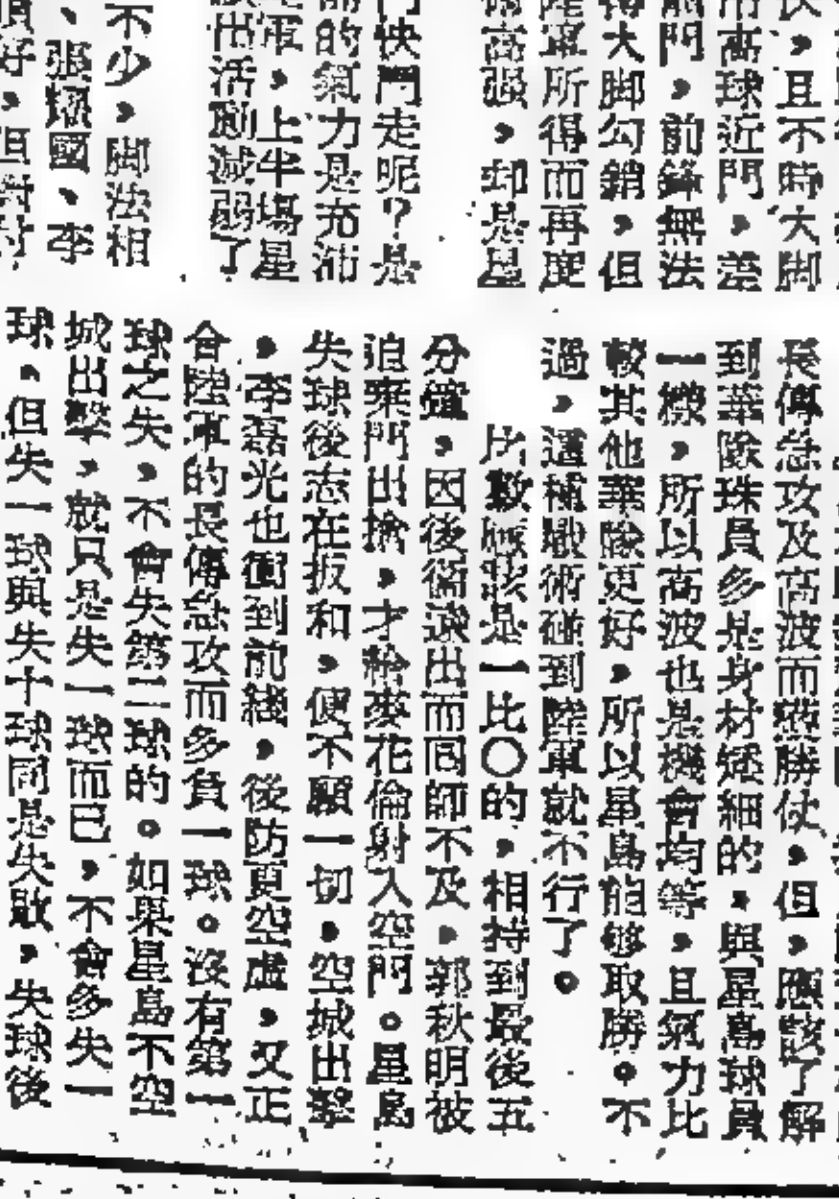 快，且不時大脚
高球近門，差
門，前鋒無法
大脚勾銷，但
陸軍所得而再度
高强，却是星
門快門走呢？是
的氣力是充沛
軍，上半塲星
出活動減弱了
不少，脚法相
、張耀國、李
好，但對付
長傳急攻及高波而獲勝仗，但，應該了解
到華隊球員多是身材矮細的，與星島球員
一樣，所以高波也是機會均等，且氣力比
較其他華隊更好，所以星島能够取勝。不
過，這種戰術碰到陸軍就不行了。
比數應該是一比〇的，相持到最後五
分鐘，因後衞談出而囘師不及，郭秋明被
迫棄門出搶，才給麥花倫射入空門。星島
失球後志在扳和，便不顧一切，空城出擊
，李磊光也衝到前綫，後防更空虛，又正
合陸軍的長傳急攻而多負一球。沒有第一
球之失，不會失第二球的。如果星島不空
城出擊，就只是失一球而已，不會多失一
球，但失一球與失十球同是失敗，失球後